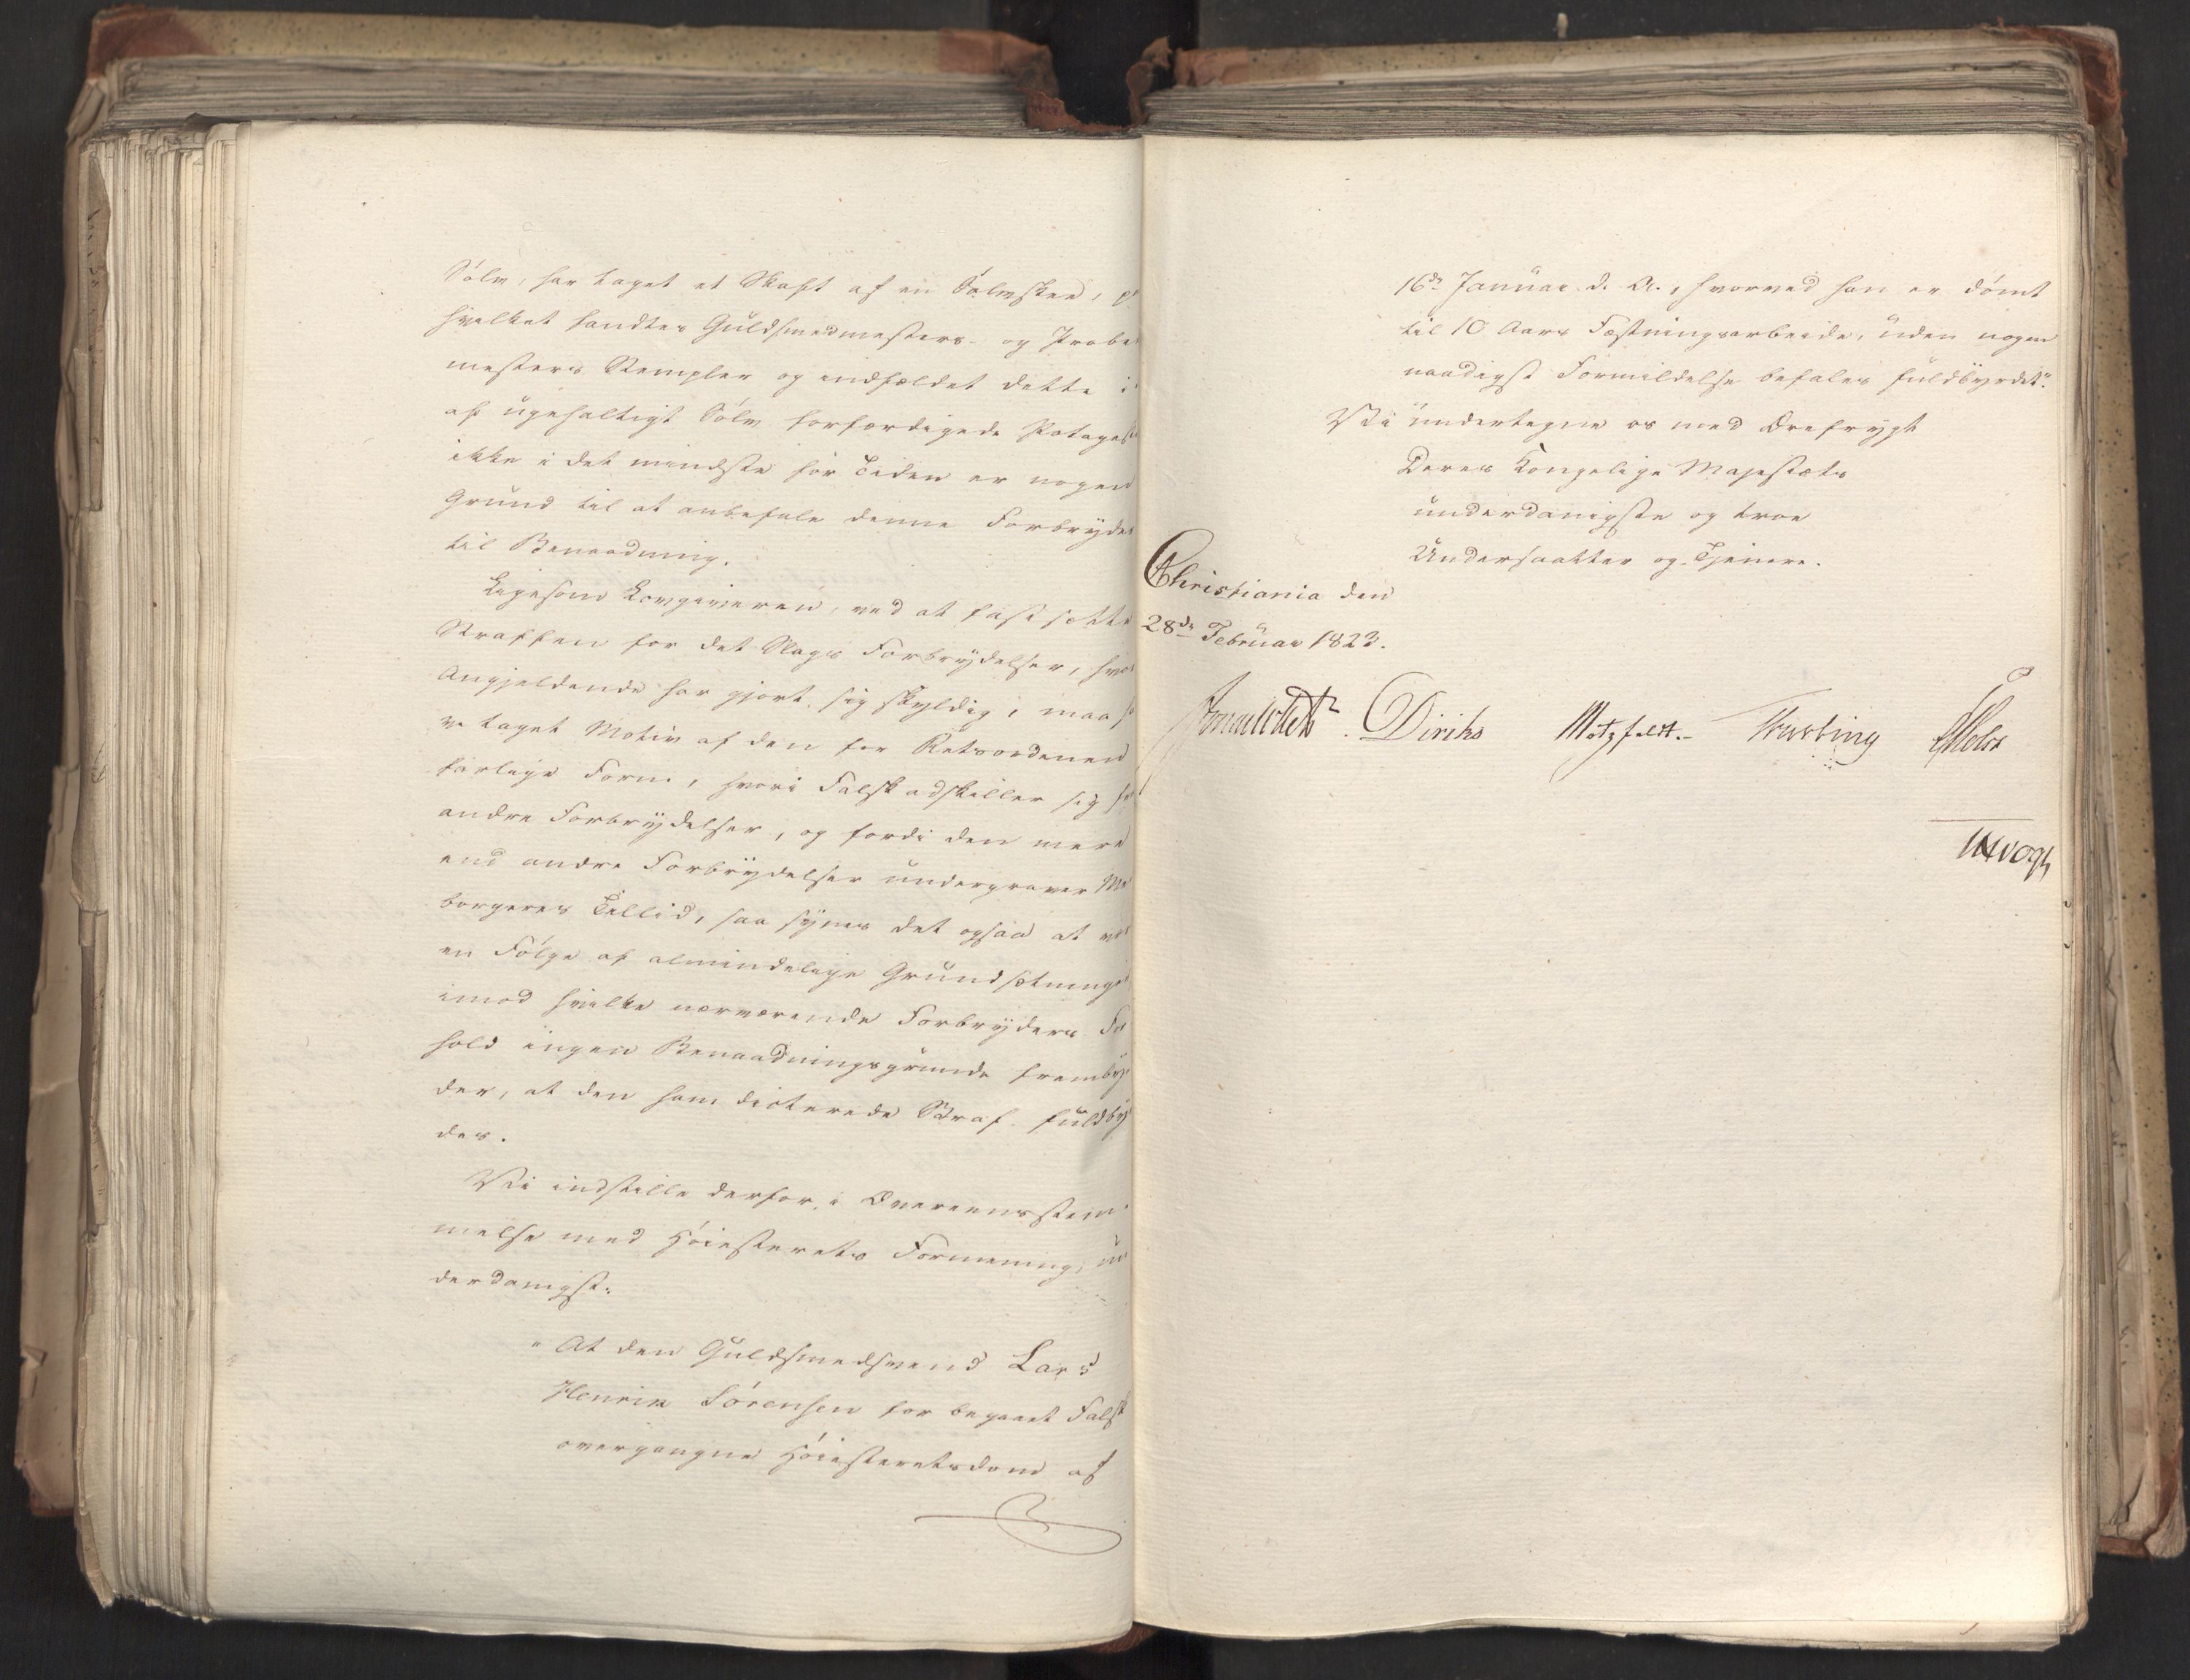 Sölv, har taget et Skaft af en Sölvskee, p
hvilket fandtes Guldsmedmesters- og Probe
mesters Stempler og indfældet dette i
af ugehaltigt Sölv forfærdigede Potages
ikke i det mindste för Tiden er nogen
Grund til at anbefale denne Forbryder
til Benaadning.
Ligesom Lovgiveren, ved at fastsætte
Straffen for det Slags Forbrydelser, hvor
Angjeldende har gjort sig skyldig i, maa
ve taget Motiv af den for Retsordenen
farlige Form, hvori Falsk adskiller sig fr
andre Forbrydelser, og fordi den mere
end andre Forbrydelser undergraver Me
borgeres Tillid, saa synes det ogsaa at væ
en Fölge af almindelige Grundsætninge
imod hvilke nærværende Forbryders For
hold ingen Benaadningsgrunde fremby
der, at den ham dicterede Straf fuldby
des.
Vi indstille derfor, i Overeensstem
melse med Höiesterets Formening, un
derdanigst:
"At den Guldsmedsvend Lars
Henrik Sörensen for begaaet Falsk
overgangne Höiesteretsdom af
16de Januar d. A., hvorved han er dömt
til 10 Aars Fæstningsarbeide, uden nogen
naadigst Formildelse befales fuldbyrdet".
Vi undertegne os med Ærefrygt
Deres Kongelige Majestæts
underdanigste og troe
Undersaatter og Tjenere.
Christiania den
28de Februar 1823.
Diriks Motzfeldt.
Vogt